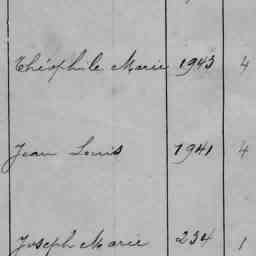 Théophile Marie 1943 4
Jean Louis 1941 4
Joseph Marie 234 1